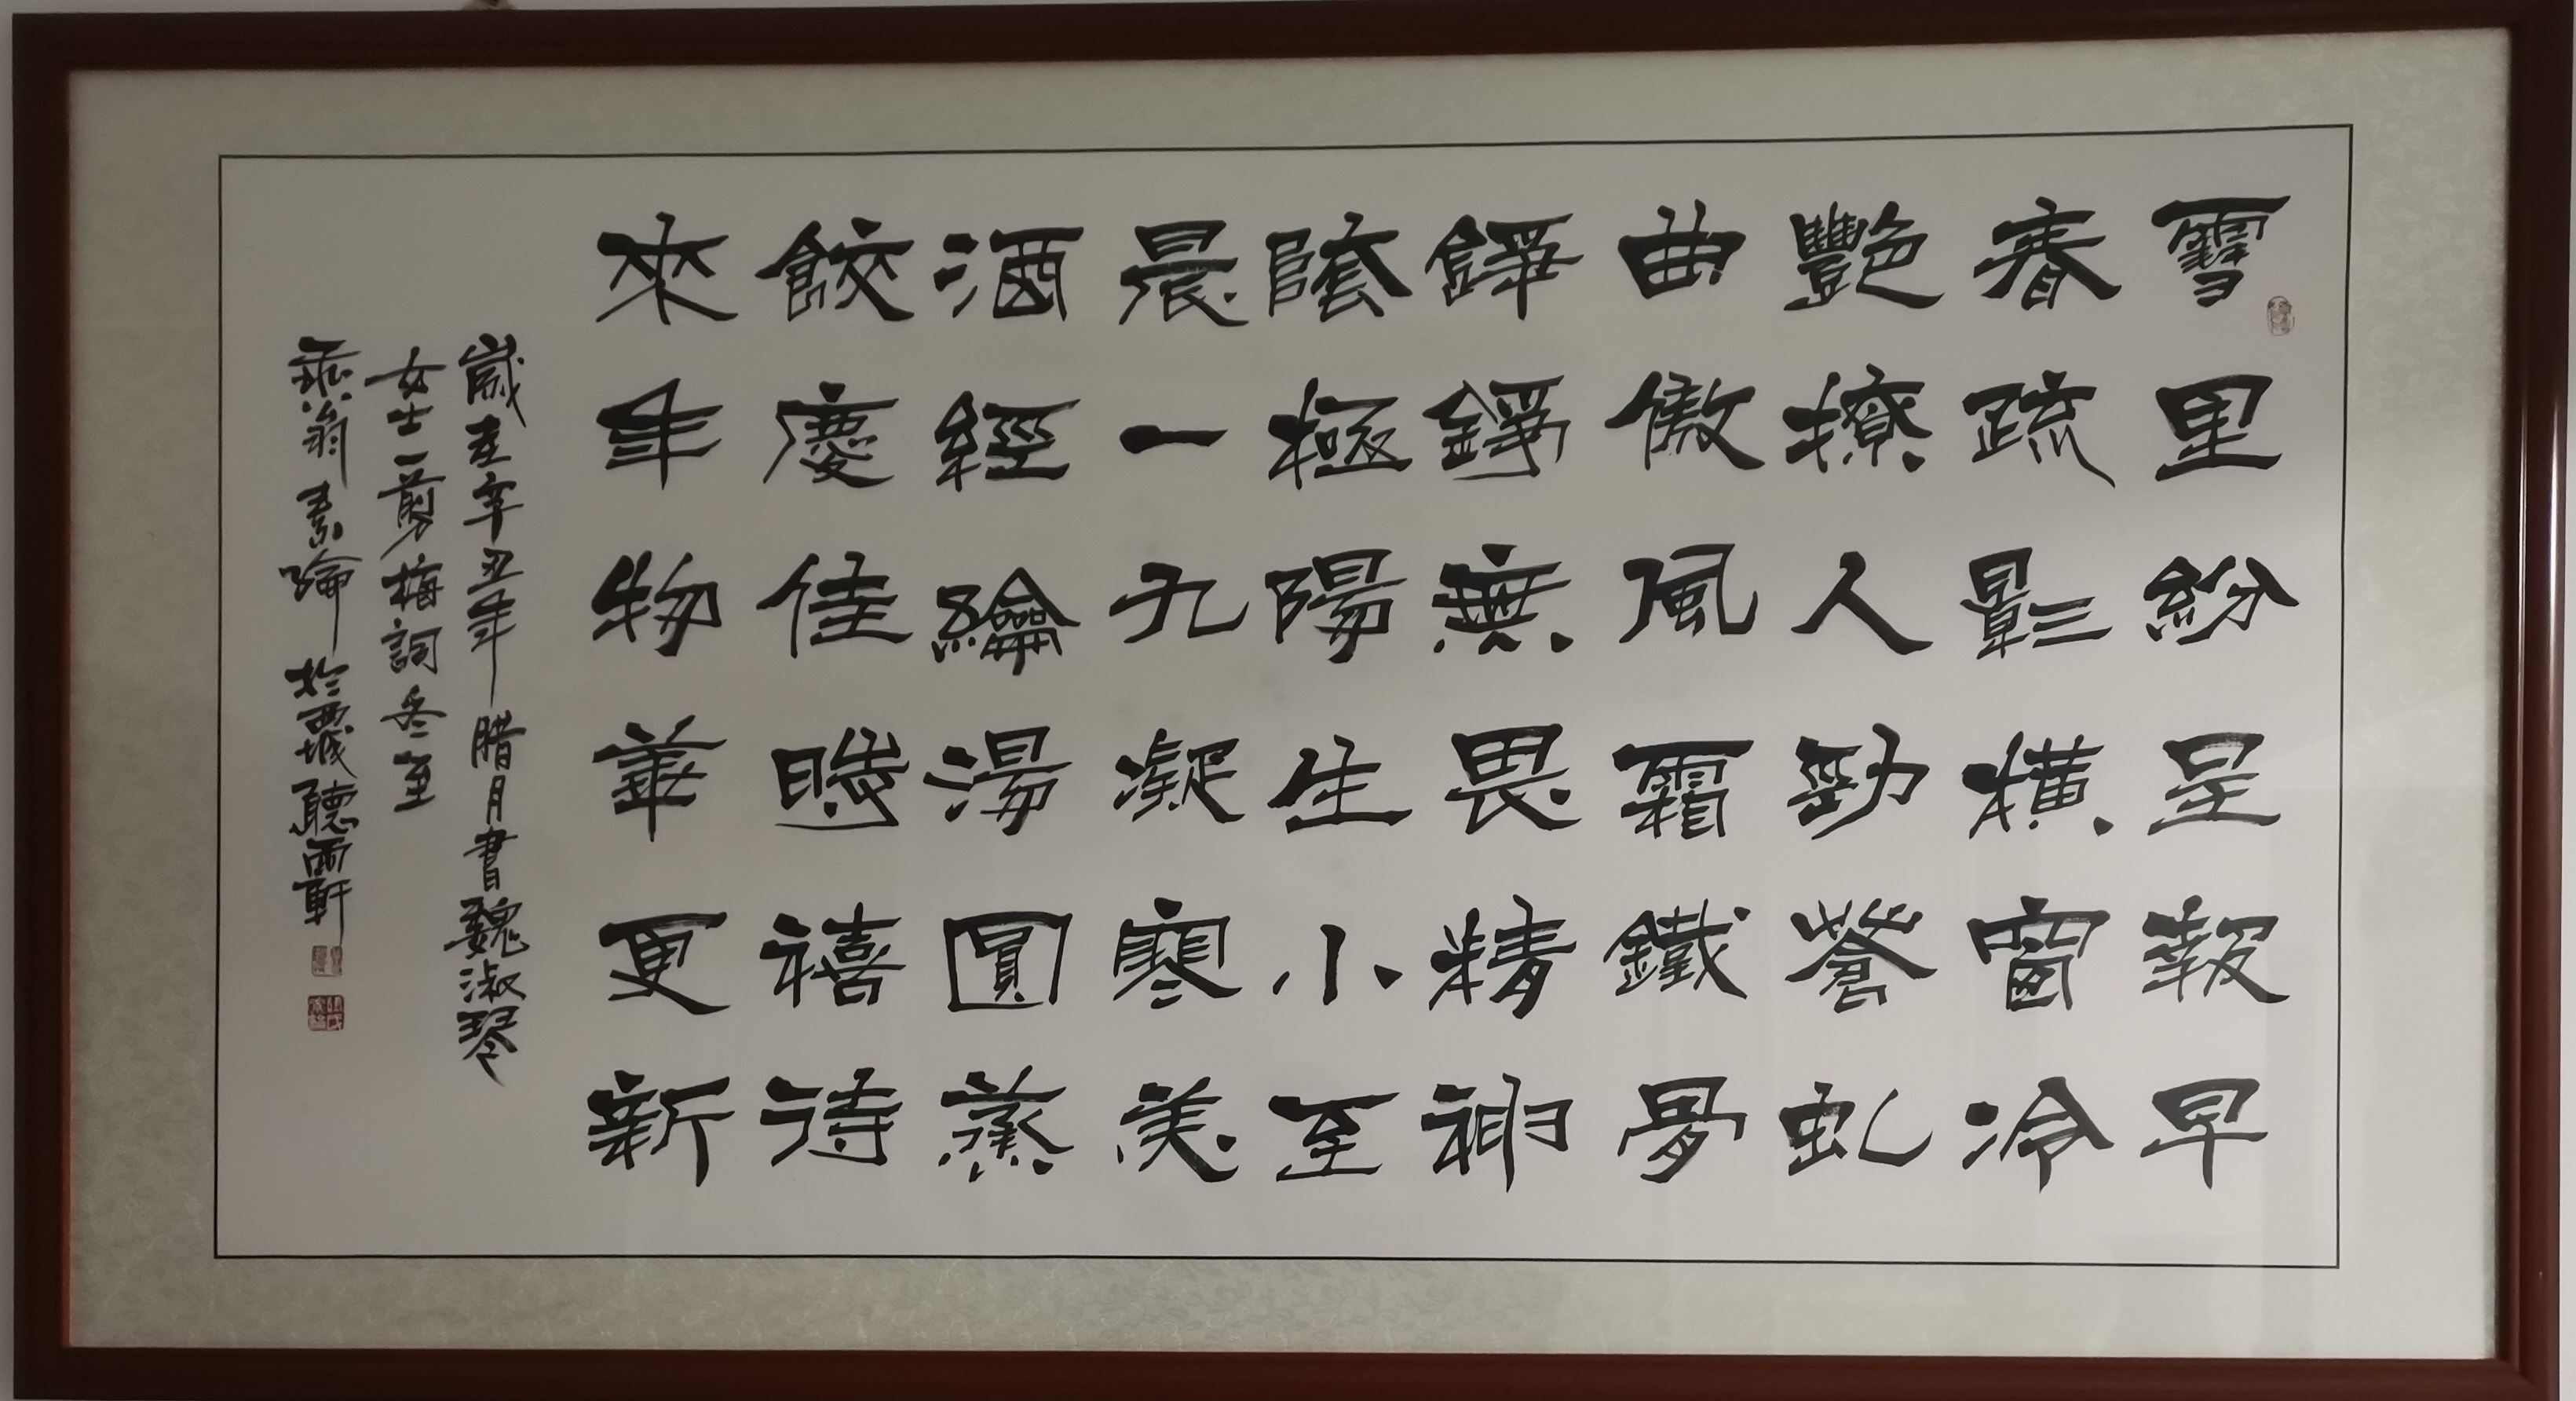 雪里紛呈報早
春疏影橫窗冷
艷撩人勁營虬
曲傲風霜鐵骨
錚錚無畏精神
陰極陽生小至
晨一九凝寒羹
酒經綸湯圓蒸
餃慶佳聰禧待
來年物華更新
歲在辛丑年腊月書魏淑琴
女士一剪梅詞冬至
翁素 於西城聽雨軒